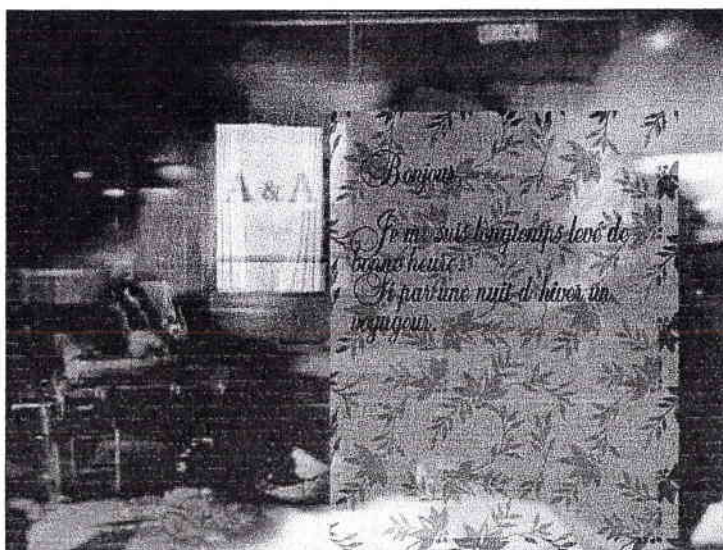 A & A
Bonjour,
Je me suis longtemps levé de
bonne heure.
Si par une nuit d'hiver un
voyageur.